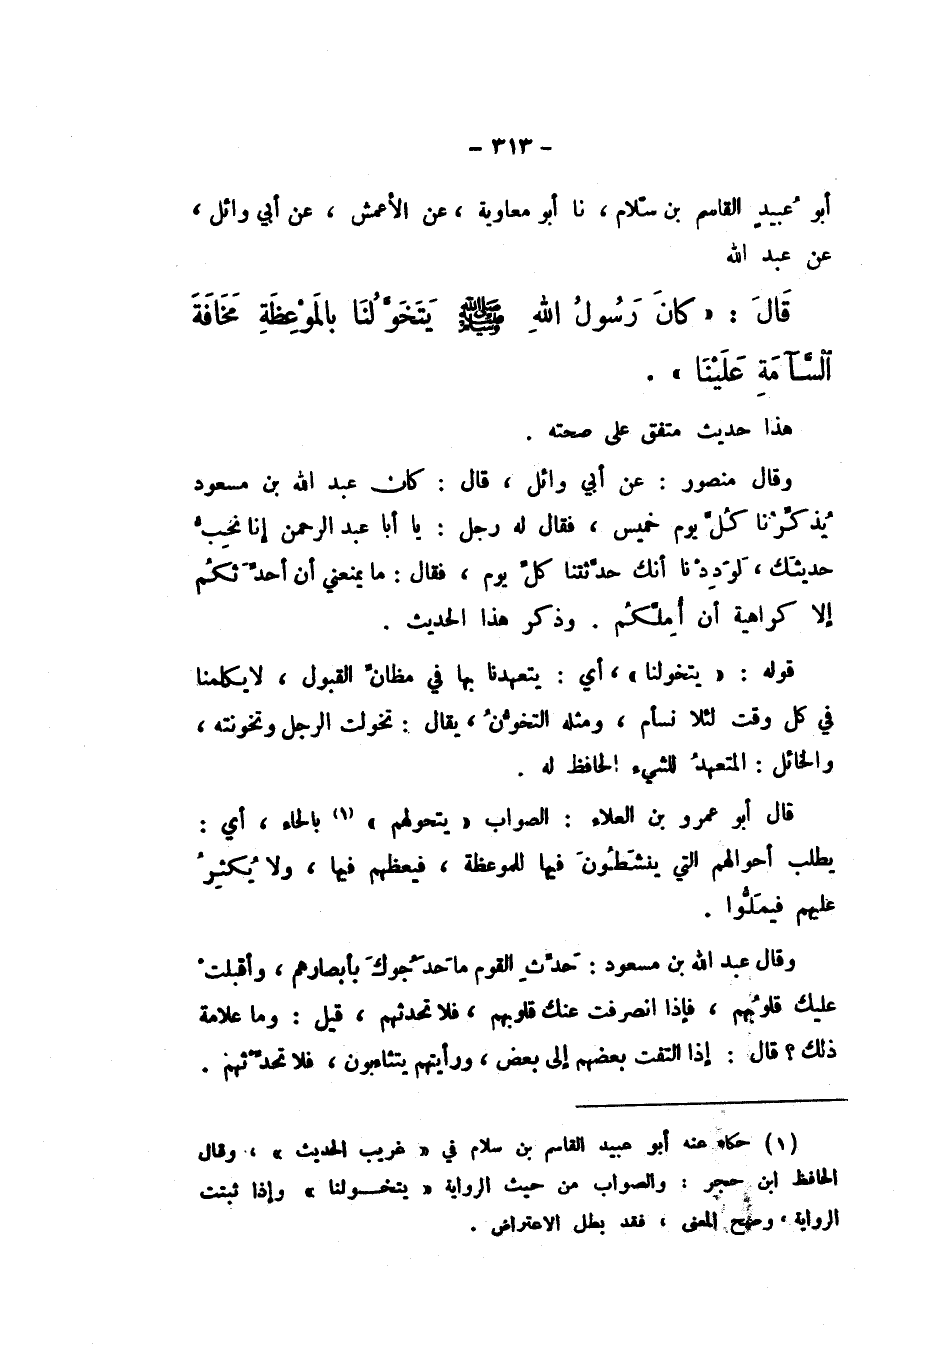 - ٣١٣ -
أبو عُبيدٍ القاسم بن سلّام ، نا أبو معاوية ، عن الأعمش ، عن أبي وائل ،
عن عبد الله
قَالَ : « كانَ رَسُولُ اللهِ ﷺ يَتَخَوَّلُنَا بالمَوْعِظَةِ مَخَافَةَ
ٱلسَّآمَةِ عَلَيْنَا » .
هذا حديث متفق على صحته .
وقال منصور : عن أبي وائل ، قال : كان عبد الله بن مسعود
يُذكِّرُنا كُلَّ يوم خميس ، فقال له رجل : يا أبا عبد الرحمن إنا نحِبُّ
حديثَك ، لَوَدِدْنا أنك حدَّثتنا كلَّ يوم ، فقال : ما يمنعني أن أحدِّثَكُم
إلا كراهية أن أُمِلَّكُم . وذكر هذا الحديث .
قوله : « يتخولنا » ، أي : يتعهدنا بها في مظانِّ القبول ، لايكلمنا
في كل وقت لئلا نسأم ، ومثله التخوُّنُ ، يقال : تخولت الرجل وتخونته ،
والخائل : المتعهدُ للشيء الحافظ له .
قال أبو عمرو بن العلاء : الصواب « يتحولهم » (١) بالحاء ، أي :
يطلب أحوالهم التي ينشَطُونَ فيها للموعظة ، فيعظهم فيها ، ولا يُكثِرُ
عليهم فيمَلُّوا .
وقال عبد الله بن مسعود : حَدِّثِ القوم ما حَدَجُوكَ بأبصارهم ، وأقبلتْ
عليك قلوبُهم ، فإذا انصرفت عنك قلوبهم ، فلا تحدثهم ، قيل : وما علامة
ذلك ؟ قال : إذا التفت بعضهم إلى بعض ، ورأيتهم يتثاءبون ، فلا تحدِّثهم .
(١) حكاه عنه أبو عبيد القاسم بن سلام في « غريب الحديث » ، وقال
الحافظ ابن حجر : والصواب من حيث الرواية « يتخولنا » وإذا ثبتت
الرواية ، وصح المعنى ، فقد بطل الاعتراض .